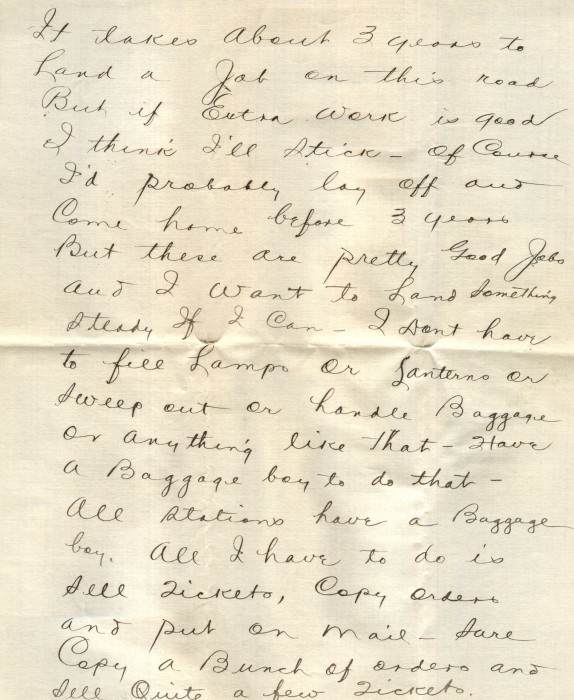 It takes About 3 years to
Land a Job on this road
But if Extra Work is good
I think I'll stick - Of Course
I'd probably lay off and
Come home before 3 years
But these are pretty Good Jobs
and I want to Land Something
Steady If I Can - I Dont have
to fill Lamps Or Lanterns or
Sweep out or handle Baggage
or anything like that - Have
a Baggage boy to do that -
All Stations have a Baggage
boy. All I have to do is
Sell Tickets, Copy orders
and put on Mail - Sure
Copy a Bunch of orders and
Sell Quite a few Tickets.